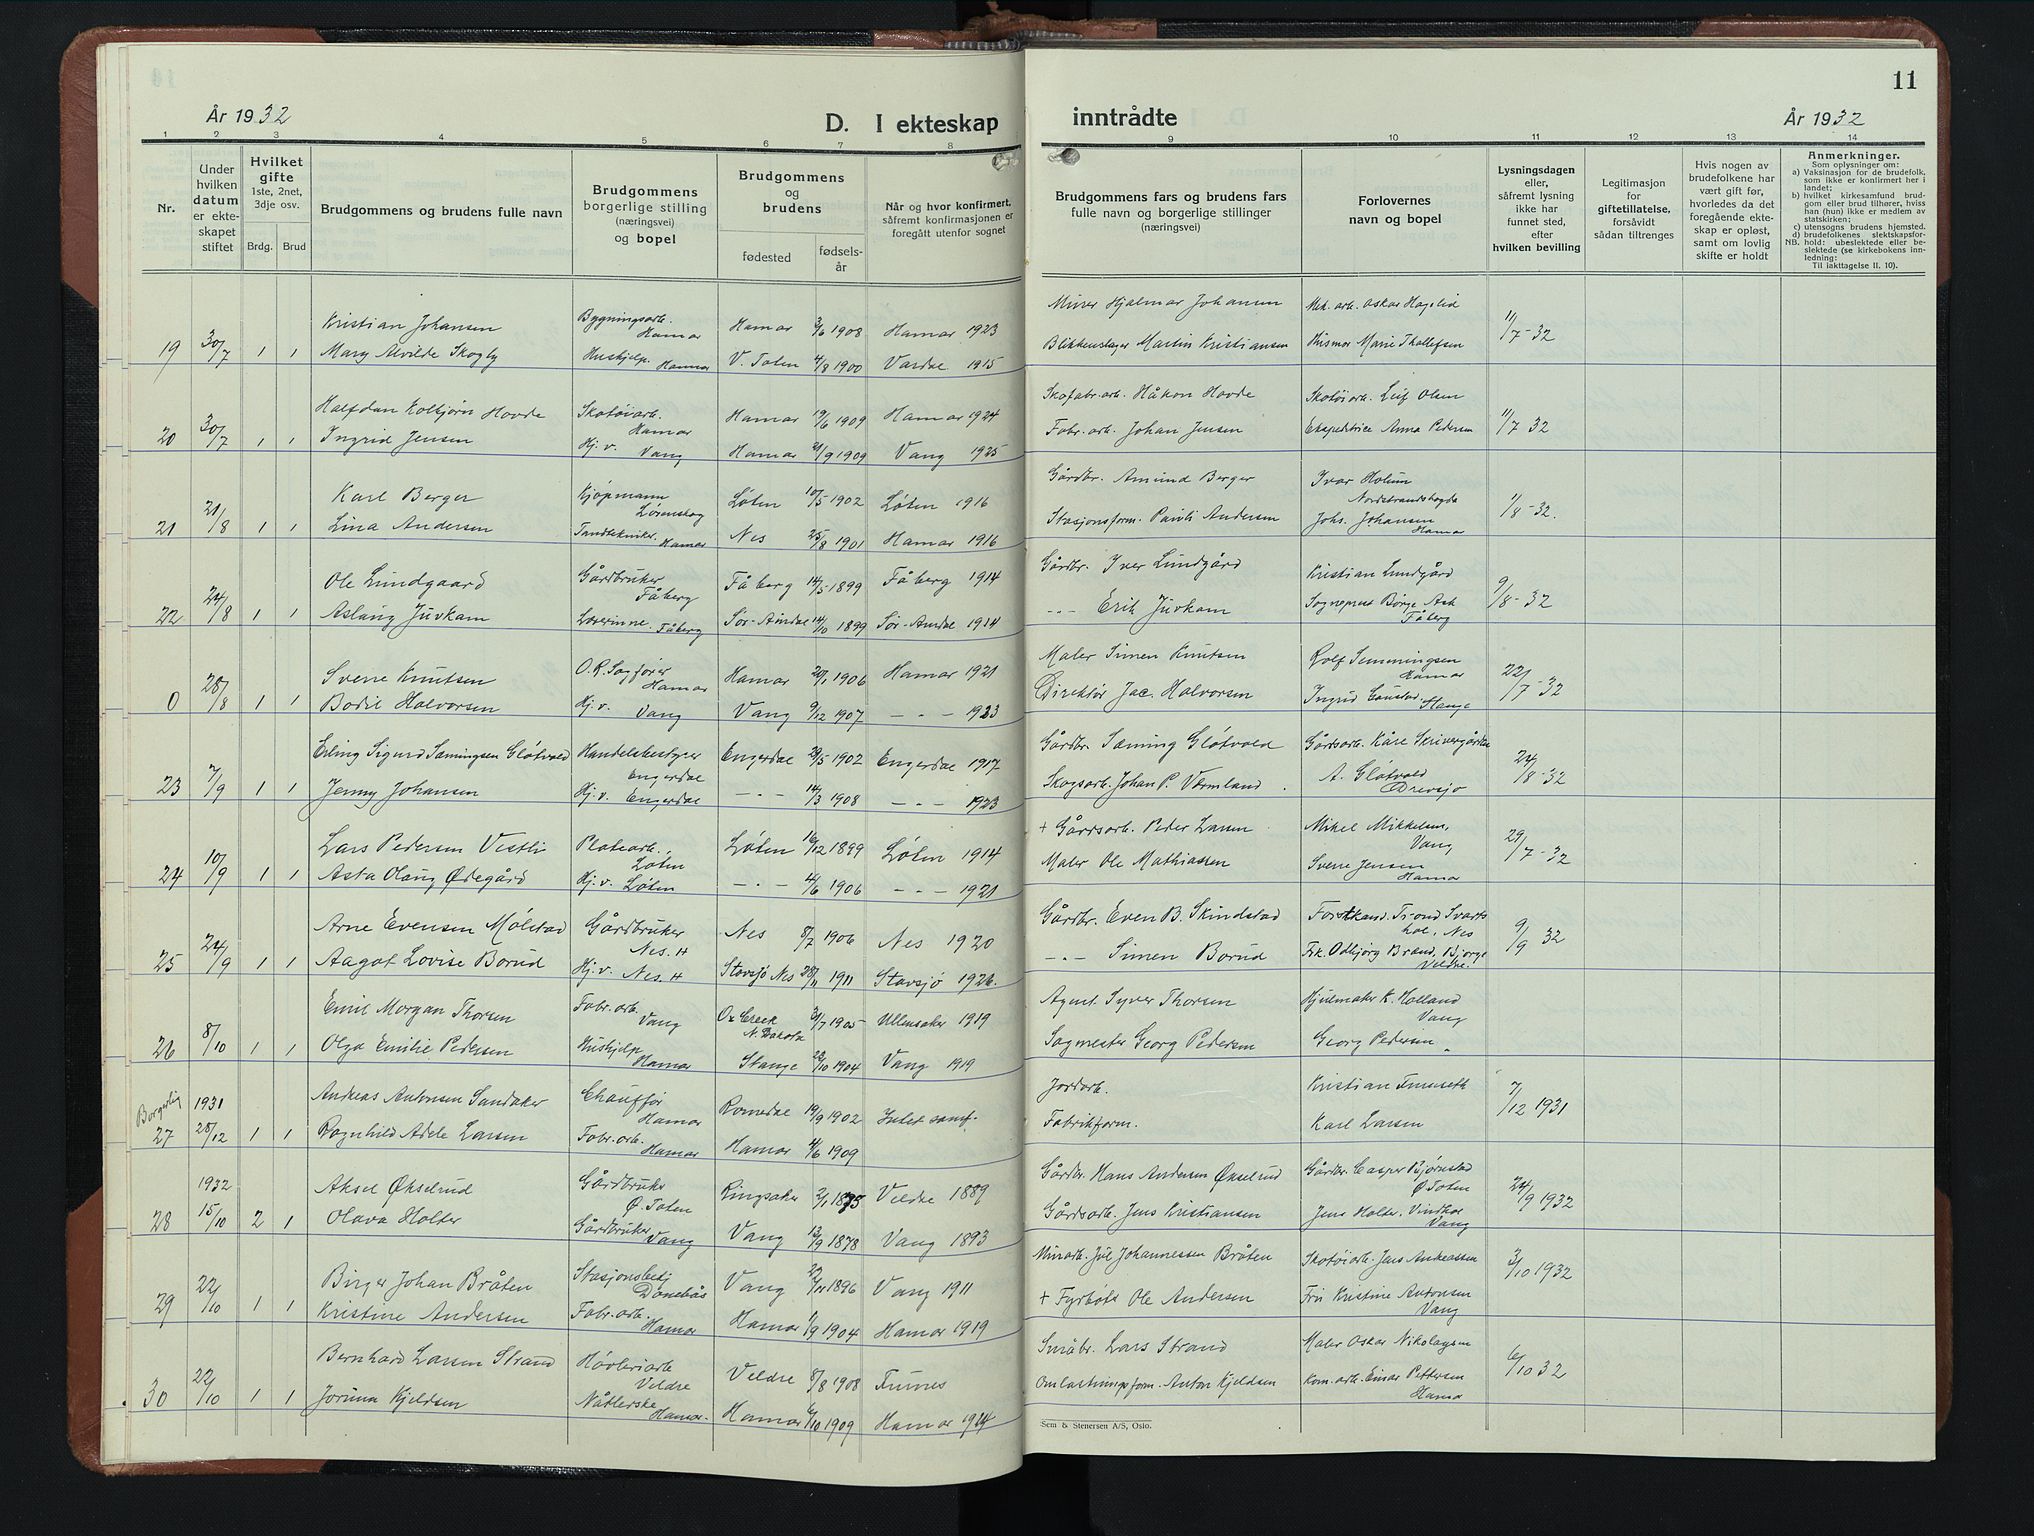 År 1932
D. I ekteskap
1 2 3 4 5 6 7 8
Nr.
Under hvilken datum er ekteskapet stiftet
Hvilket gifte
1ste, 2net, 3dje osv.
Brdg. Brud
Brudgommens og brudens fulle navn
Brudgommens borgerlige stilling (næringsvei) og bopel
Brudgommens og brudens
fødested
fødselsår
Når og hvor konfirmert, såfremt konfirmasjonen er foregått utenfor sognet
19 30/7 1 1
Kristian Johansen Bygningsarb. Hamar Hamar 3/6 1908 Hamar 1923
Mary Alvilde Skogly Hushjelp. Hamar V. Toten 4/8 1900 Vardal 1915
20 30/7 1 1
Halfdan Kolbjørn Hovde Skotøiarb. Hamar Hamar 19/6 1909 Hamar 1924
Ingrid Jensen Hj.v. Vang Hamar 21/9 1909 Vang 1925
21 21/8 1 1
Karl Berger Kjøpmann Lørenskog Løten 10/5 1902 Løten 1916
Lina Andersen Tandtekniker. Hamar Nes 25/8 1901 Hamar 1916
22 24/8 1 1
Ole Lundgaard Gårdbruker Fåberg Fåberg 14/5 1899 Fåberg 1914
Aslaug Juvkam Lærerinne. Fåberg Sør-Aurdal 14/10 1899 Sør-Aurdal 1914
0 28/8 1 1
Sverre Knutsen O.R. Sagfører Hamar Hamar 20/1 1906 Hamar 1921
Bodil Halvorsen Hj.v. Vang Vang 9/12 1907 - - - 1923
23 7/9 1 1
Erling Sigurd Sæmingsen Gløtvold Handelsbestyrer Engerdal Engerdal 29/5 1902 Engerdal 1917
Jenny Johansen Hj.v. Engerdal - - - 14/3 1908 - - - 1923
24 10/9 1 1
Lars Pedersen Vestli Platearb. Løten Løten 16/12 1899 Løten 1914
Asta Olaug Ødegård Hj.v. Løten - - - 4/6 1906 - - - 1921
25 24/9 1 1
Arne Evensen Mølstad Gårdbruker Nes. H Nes 8/7 1906 Nes 1920
Aagot Lovise Borud Hj.v. Nes. H Stavsjø Nes 28/11 1911 Stavsjø 1926.
26 8/10 1 1
Emil Morgan Thorsen Fabr.arb. Vang Ox Creek N. Dakota 31/7 1905 Ullensaker 1919
Olga Emilie Pedersen Hushjelp Hamar Stange 23/10 1904 Vang 1919
Borgerlig
27 1931 28/12 1 1
Andreas Antonsen Sandaker Chauffør Hamar Romedal 19/9 1902 Intet samf.
Ragnhild Adele Larsen Fabr.arb. Hamar Hamar 4/6 1909
28 1932 15/10 2 1
Aksel Økselrud Gårdbruker Ø. Toten Ringsaker 2/1 1875 Veldre 1889
Olava Holter Gårdbruker Vang Vang 13/9 1878 Vang 1893
29 22/10 1 1
Birger Johan Bråten Stasjonsbetj Dombås Vang 1896 Vang 1911
Kristine Andersen Fabr.arb. Hamar Hamar 1/9 1904 Hamar 1919
30 22/10 1 1
Bernhard Larsen Strand Høvleriarb Veldre Veldre 8/8 1908 Furnes
Jorunn Kjeldsen Nåtlerske Hamar. Hamar 6/10 1909 Hamar 1924
11
inntrådte
År 1932
9 10 11 12 13 14
Brudgommens fars og brudens fars fulle navn og borgerlige stillinger (næringsvei)
Forlovernes navn og bopel
Lysningsdagen eller, såfremt lysning ikke har funnet sted, efter hvilken bevilling
Legitimasjon for giftetillatelse, forsåvidt sådan tiltrenges
Hvis nogen av brudefolkene har vært gift før, hvorledes da det foregående ekteskap er opløst, samt om lovlig skifte er holdt
Anmerkninger.
Som oplysninger om:
a) Vaksinasjon for de brudefolk, som ikke er konfirmert her i landet;
b) hvilket kirkesamfund brudgom eller brud tilhører, hviss han (hun) ikke er medlem av statskirken;
c) utensogns brudens hjemsted.
d) brudefolkenes slektskapsforhold: ubeslektede eller beslektede (se kirkebokens innledning:
NB.
Til iakttagelse II. 10).
Murer Hjalmar Johansen Mek. arb. Oskar Hagelid 11/7-32
Blikkenslager Martin Kristiansen Husmor Marie Thollefsen
Skofabr.arb. Håkon Hovde Skotøiarb. Leif Olsen 11/7 32
Fabr.arb. Johan Jensen Ekspeditrice Anna Pedersen
Gårdbr. Amund Berger Ivar Holum Nordstrandshøgda 1/8-32.
Stasjonsform. Paul Andersen Johs. Johansen Hamar
Gårdbr. Iver Lundgård Kristian Lundgård 9/8-32
- - - Erik Juvkam Sogneprest Børge Ask Fåberg
Maler Simen Knutsen Rolf Semmingsen Hamar 22/7-32
Direktør Jac. Halvorsen Ingrid Gaustad. Stange
Gårdbr. Sæming Gløtvold Gårdsarb. Kåre Skrivergården 24/8-32
Skogsarb. Johan P. Værmland A. Gløtvold Drevsjø
+ Gårdsarb. Peder Larsen Mikel Mikkelsen, Vang 29/7-32
Maler Ole Mathiassen Sverre Jensen Hamar
Gårdbr. Even B. Skindstad Forstkand. Trond Svartshol, Nes 9/9 32
- - - Simen Borud Frk. Odbjørg Brand, Bjørge Veldre.
Agent. Syver Thorsen Hjulmaker K. Holland Vang
Sagmester Georg Pedersen Georg Pedersen "
Jordarb. Kristian Furuseth 7/12 1931
Fabrikform. Karl Larsen
Gårdbr. Hans Andersen Økselrud Gårdbr. Casper Bjørnstad Ø. Toten 24/9 1932
Gårdsarb. Jens Kristiansen Jens Holter, Vindkor Vang
Murarb. Juel Johannessen Bråten Skotøiarb. Jens Andreassen 3/10 1932
+ Fyrbøter Ole Andersen Fru Kristine Antonsen Vang
Småbr. Lars Strand Maler Oskar Nikolaysen 6/10 32
Omlastningsform. Anton Kjeldsen Kom.arb. Einar Pettersen Hamar
Sem & Stenersen A/S, Oslo.